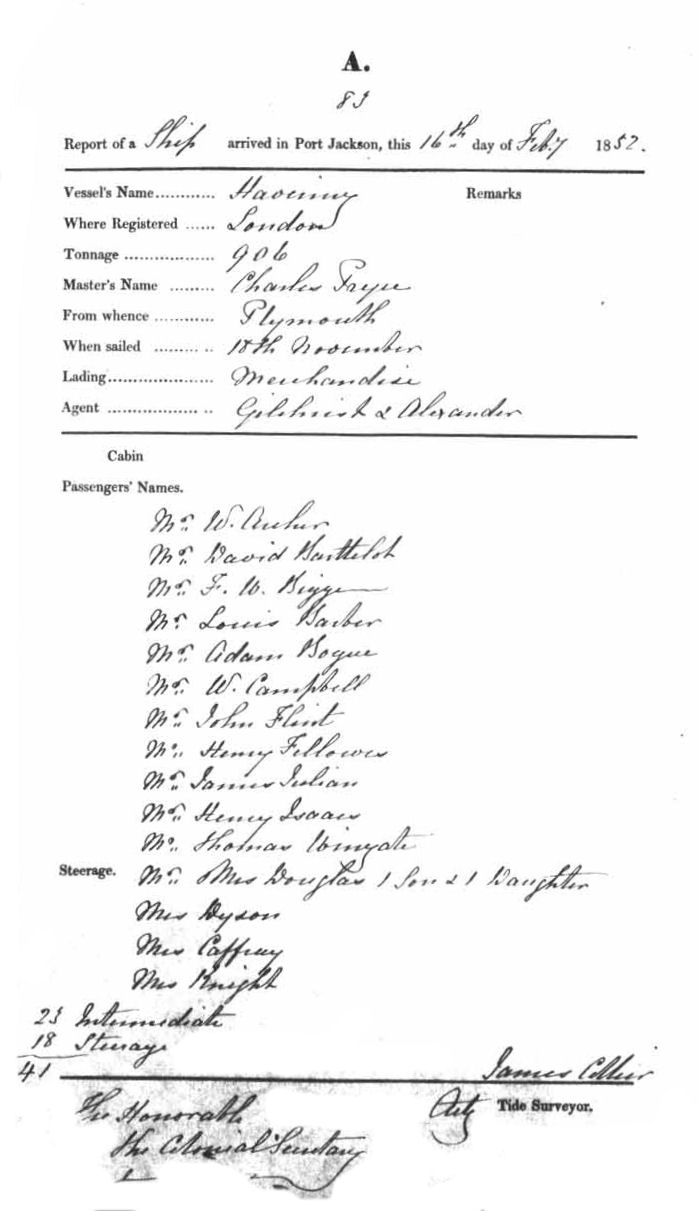 A.
83
Report of a Ship arrived in Port Jackson, this 16th day of Feby 1852.
Vessel's Name............ Havering Remarks
Where Registered ...... London
Tonnage .................. 906
Master's Name ......... Charles Fryer
From whence ............ Plymouth
When sailed ......... .. 18th November
Lading..................... Merchandise
Agent .................. .. Gilchrist & Alexander
Cabin
Passengers' Names.
Mr. W. Archer
Mr. David Barttelot
Mr. F. W. Bigge
Mr. Louis Barber
Mr. Adam Bogue
Mr. W. Campbell
Mr. John Flint
Mr. Henry Fellowes
Mr. James Julian
Mr. Henry Isaacs
Mr. Thomas Wingate
Steerage. Mr. Mrs Douglas 1 Son & 1 Daughter
Mrs Dyson
Mrs Caffray
Mrs Knight
23 Intermediate
18 Steerage
41
James Collier
Actg Tide Surveyor.
The Honorable
the Colonial Secretary